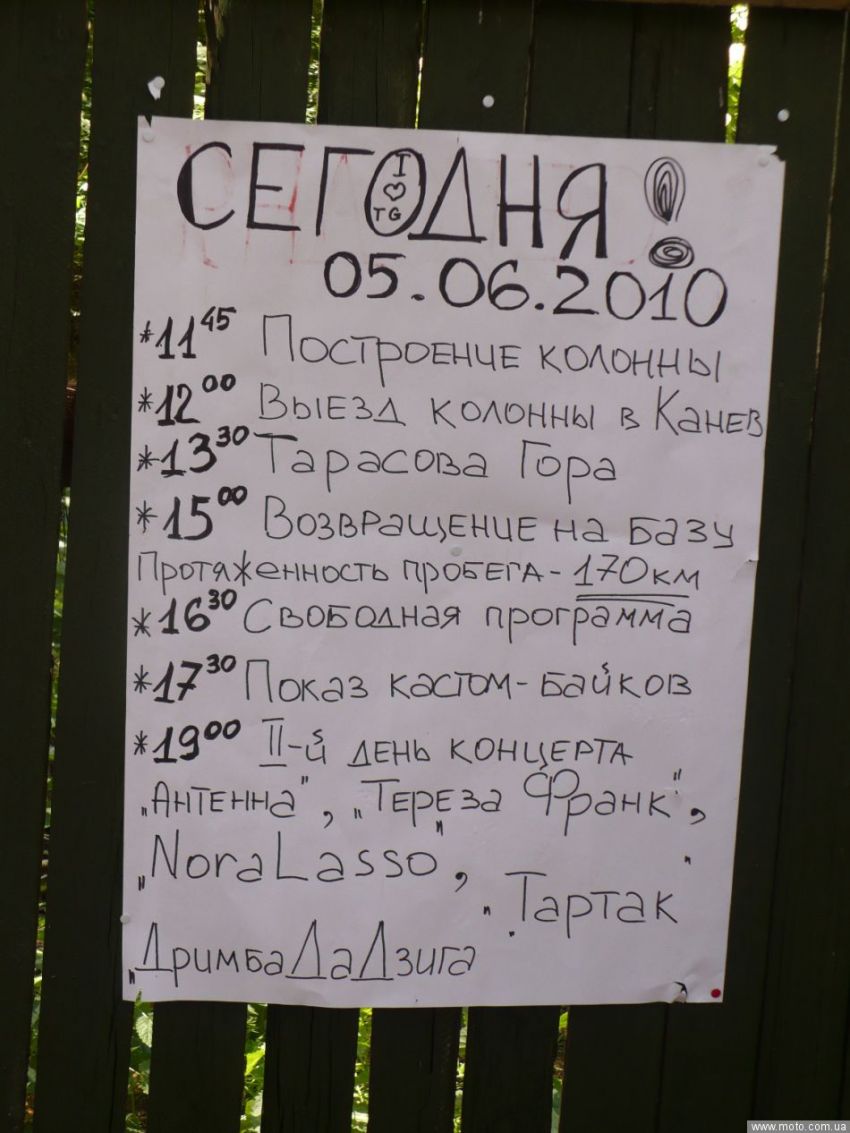 СЕГОДНЯ!
I ♡ TG
05.06.2010
*11 45 Построение колонны
*12 00 Выезд колонны в Канев
*13 30 Тарасова Гора
*15 00 Возвращение на базу
Протяженность пробега - 170 км
*16 30 Свободная программа
*17 30 Показ кастом-байков
*19 00 II-й день концерта
„Антенна", „Тереза Франк",
„Nora Lasso", „Тартак"
„ДримбаДаДзига
www.moto.com.ua